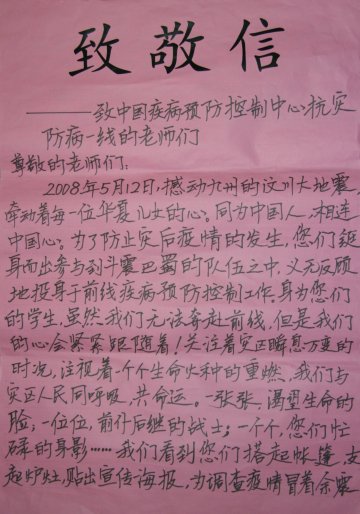 致敬信
——致中国疾病预防控制中心抗灾
防病一线的老师们
尊敬的老师们:
2008年5月12日,撼动九州的汶川大地震,
牵动着每一位华夏儿女的心。同为中国人,相连
中国心。为了防止灾后疫情的发生,您们挺
身而出参与到斗震巴蜀的队伍之中,义无反顾
地投身于前线疾病预防控制工作。身为您们
的学生,虽然我们无法奔赴前线,但是我们
的心会紧紧跟随着!关注着灾区瞬息万变的
时况,注视着一个个生命火种的重燃,我们与
灾区人民同呼吸,共命运。一张张,渴望生命的
脸;一位位,前仆后继的战士;一个个,您们忙
碌的身影……我们看到您们搭起帐篷,支
起炉灶,贴出宣传海报,为调查疫情冒着余震